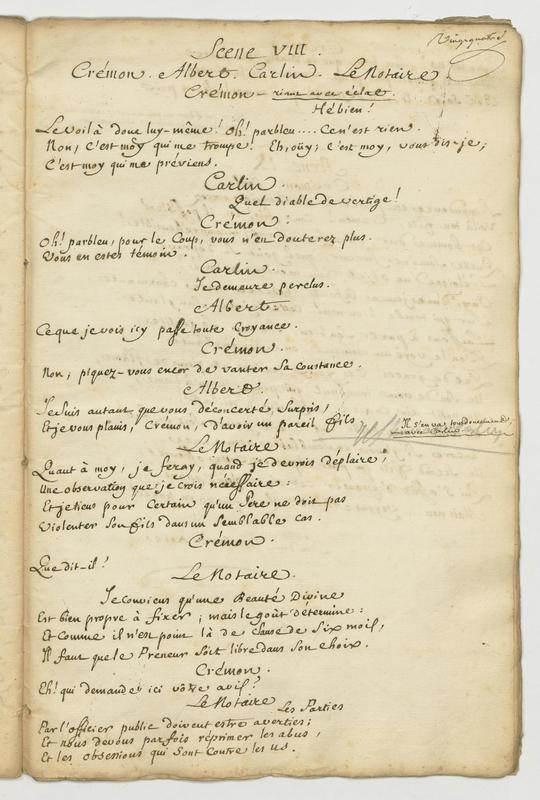 Vingtquatre
Scene VIII.
Crémon. Albert. Carlin. Le Notaire.
Crémon - riant avec éclat.
Hé bien!
Le voilà donc luy-même! Oh! parbleu.... Ce n'est rien.
Non, C'est môy qui me trompe! Eh, oüy; C'est moy, vous dis-je;
C'est moy qui me préviens.
Carlin.
Quel diable de vertige!
Crémon.
Oh! parbleu, pour le Coup, vous n'en douterez plus.
Vous en estes témoin.
Carlin.
Je demeure perclus.
Albert.
Ce que je vois icy passe toute Croyance.
Crémon.
Non; piquez-vous encor de vanter sa constance.
Albert.
Je suis autant que vous déconcerté, surpris,
Et je vous plains, Crémon, d'avoir un pareil fils
Il s'en va tout doucement,
avec Carlin.
Le Notaire.
Quant à moy, je feray, quand je devrois déplaire,
Une observation que je crois nécessaire:
Et je tiens pour Certain qu'un Pere ne doit pas
Violenter Son fils dans un Semblable cas.
Crémon.
Que dit-il?
Le Notaire.
Je conviens qu'une Beauté Divine
Est bien propre à fixer; mais le goût détermine:
Et Comme il n'est point là de Clause de Six mois,
Il faut que le Preneur Soit libre dans Son choix.
Crémon.
Eh! qui demande ici vôtre avis?
Le Notaire
Les Parties
Par l'officier public doivent estre averties;
Et nous devons parfois réprimer les abus,
Et les obsessions qui Sont Contre les us.